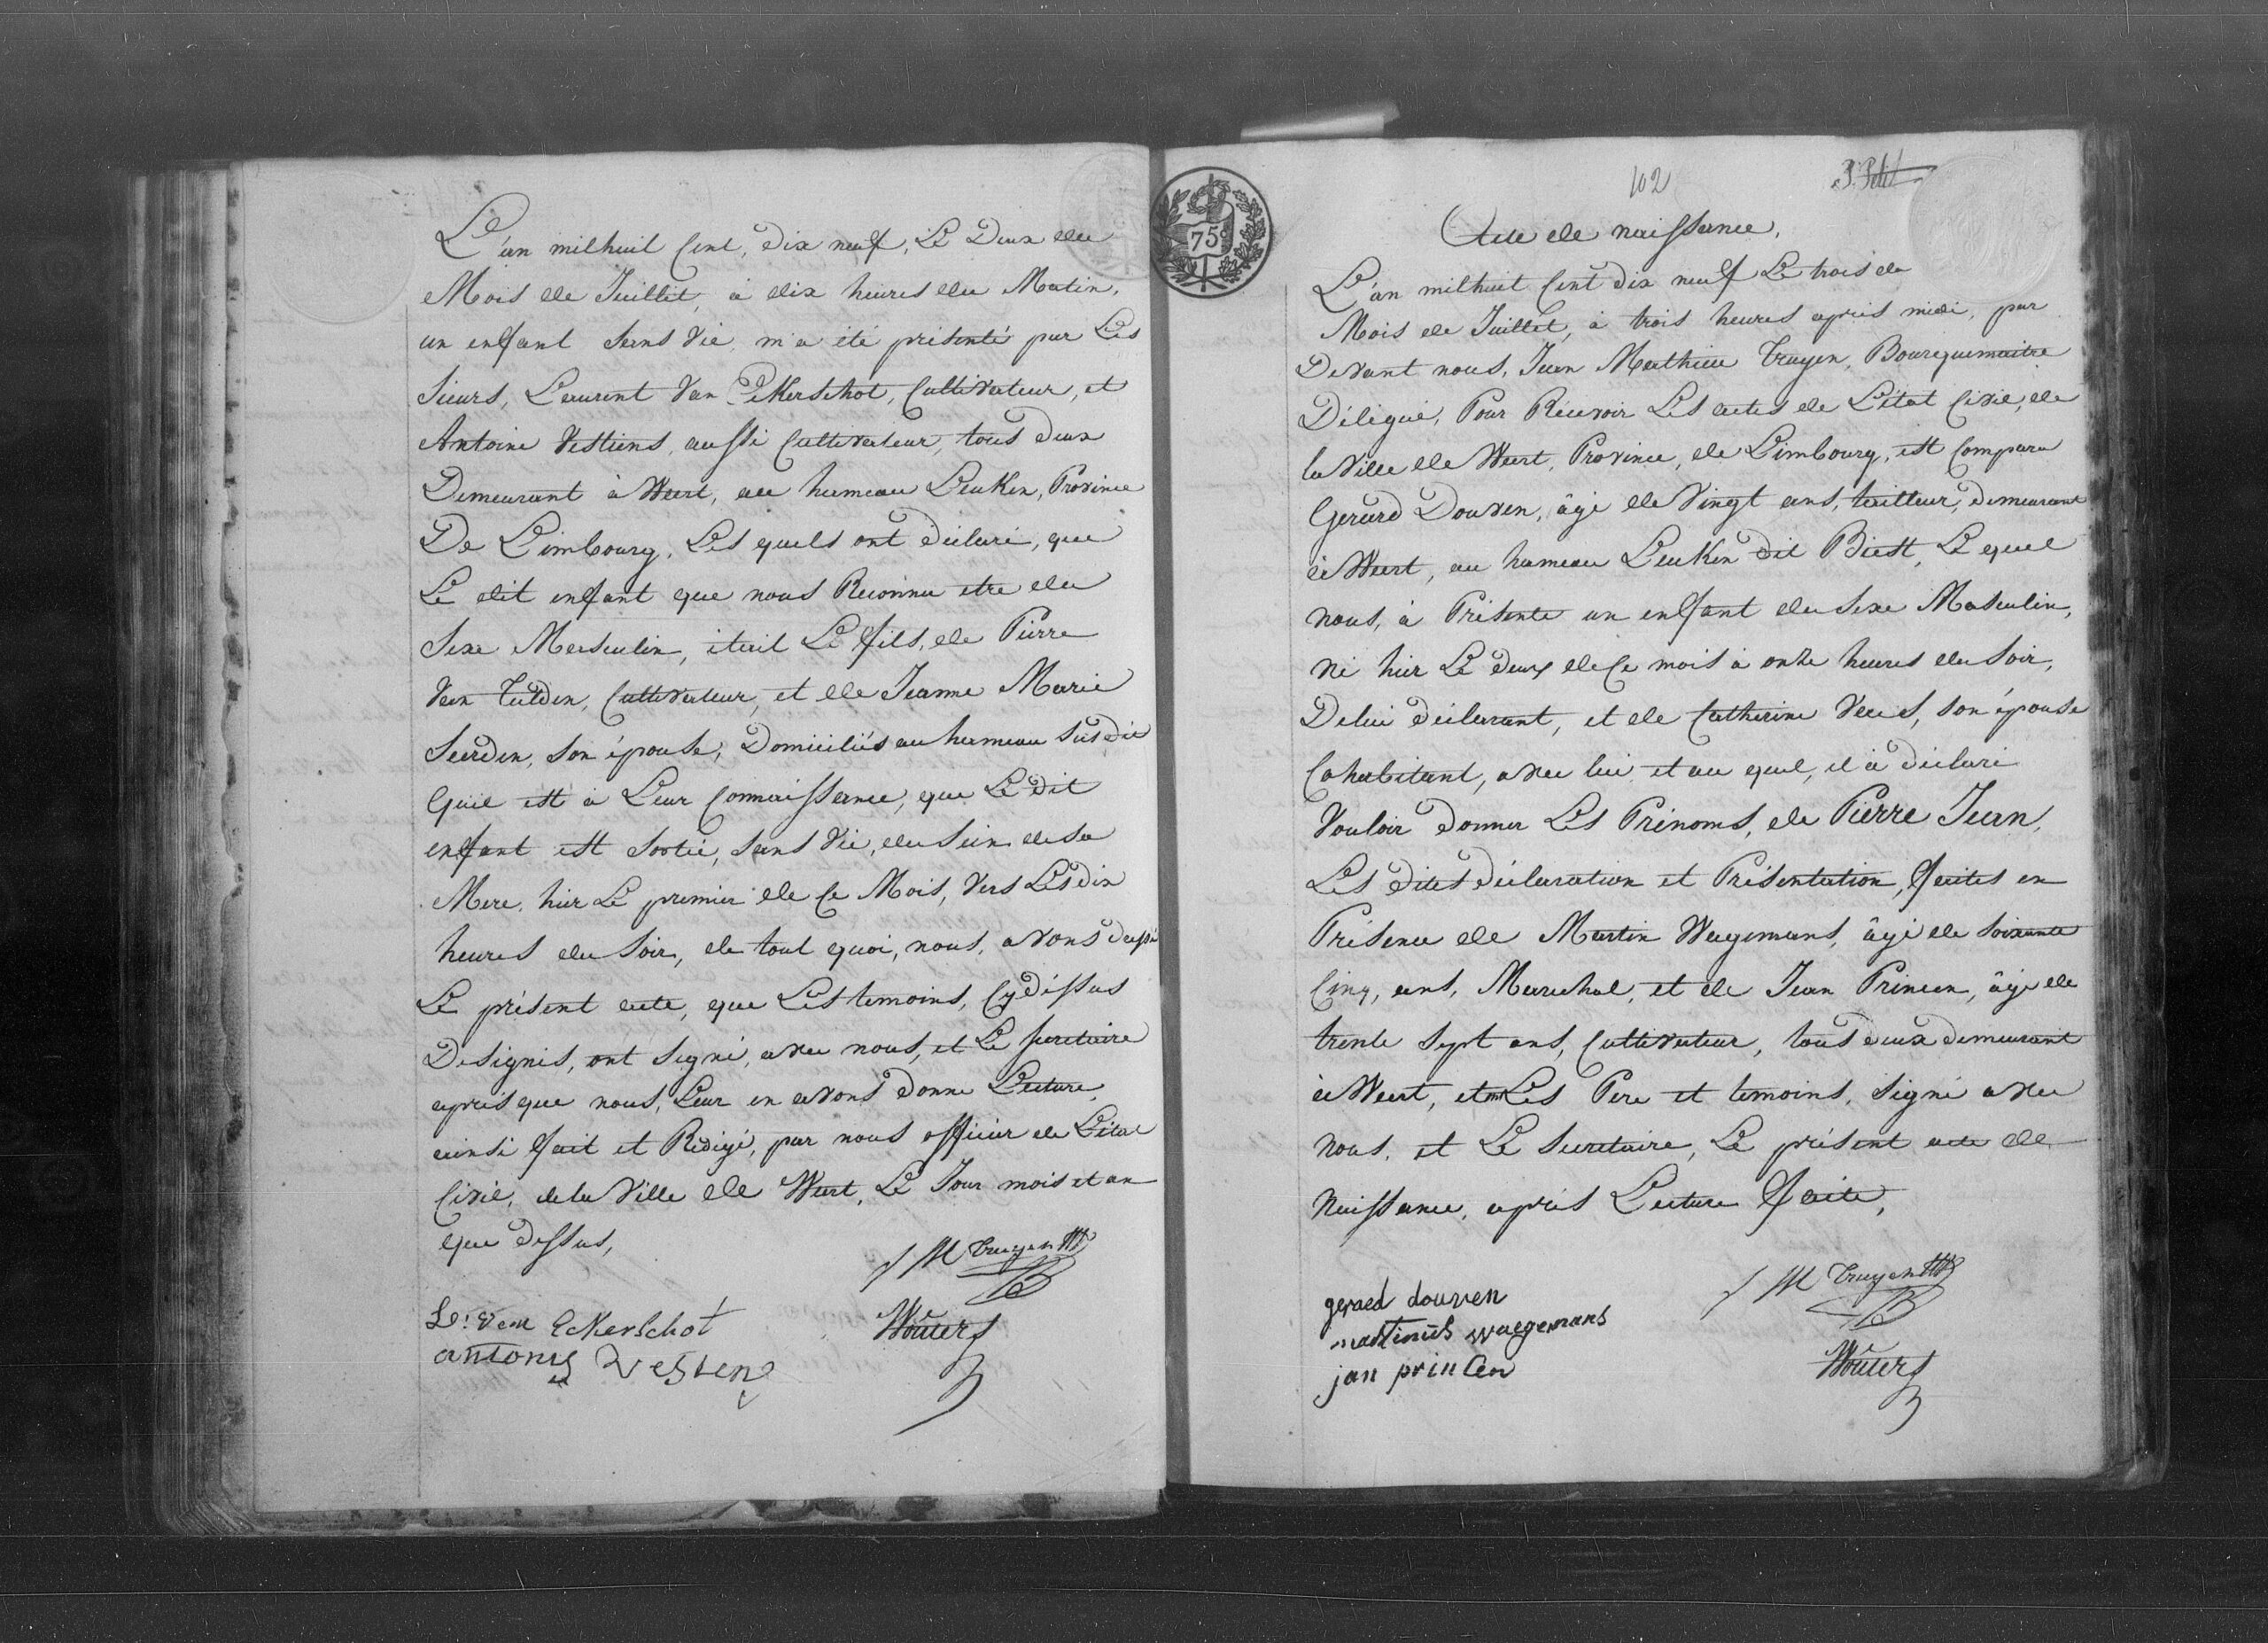 L'an milhuit Cent, dix neuf, Le Deux du
Mois de Juillet, à dix heures du Matin,
un enfant sans Vie, m'a été présenté par Les
Sieurs, Laurent Van Eekerschot, Cultivateur, et
Antoine Vestiens, aussi Cultivateur, tous deux
Demeurant à Weert, au hameau Leuken, Province
De Limbourg, Les quels ont déclaré, que
Le dit enfant que nous Reconnu etre du
Sexe Masculin, était Le fils, de Pierre
Van Tulden, Cultivateur, et de Jeanne Marie
Seerden, son épouse, Domiciliés au hameau susdit
Qu'il est à Leur Connaissance, que Le dit
enfant est Sortie, sans Vie, du sein de sa
Mere, hier Le premier de Ce Mois, Vers Les dix
heures du Soir, de tout quoi, nous, avons dressé
Le présent acte, que Les temoins, Cy dessus
Designés, ont signé, avec nous, et Le secretaire
après que nous, Leur en avons donne Lecture,
ainsi fait et Redigé, par nous officier de L'état
Civil, de la Ville de Weert, Le Jour mois et an
que dessus,
J M Truyen
L: van Eckerschot
Wouters
antonis Vesten
75c
102
Acte de naissance,
L'an milhuit Cent dix neuf Le trois du
Mois de Juillet, à trois heures après midi, par
Devant nous, Jean Mathieu Truyen, Bourguemaitre
Délégué, Pour Récevoir Les actes de L'état Civil, de
la Ville de Weert, Province, de Limbourg, est Comparu
Gerard Douven, âgé de Vingt ans, tailleur, demeurant
à Weert, au hameau Leuken dit Biest, Le quel
nous, à Présente un enfant du Sexe Masculin,
né hier Le deux de Ce mois à onze heures du Soir,
De lui déclarant, et de Catherine Vaes, son épouse
Cohabitant, avec lui, et au quel, il à déclaré
Vouloir donner Les Prénoms, de Pierre Jean,
Les dites déclaration et Présentation, faites en
Présence de Martin Wagemans, âgé de soixante
Cinq, ans, Marechal, et de Jean Princen, âgé de
trente Sept ans, Cultivateur, tous deux demeurant
à Weert, et ont Les Pere et temoins, signé avec
nous, et Le Secretaire, Le présent acte de
Naissance, après Lecture faite,
J M Truyen
geraed douven
martinus waegemans
Wouters
jan princen